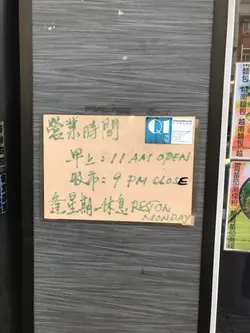 營業時間
早上:11 AM OPEN
收市:9 PM CLOSE
逢星期一休息 REST ON
MONDAY
越南麵包
越南麵包